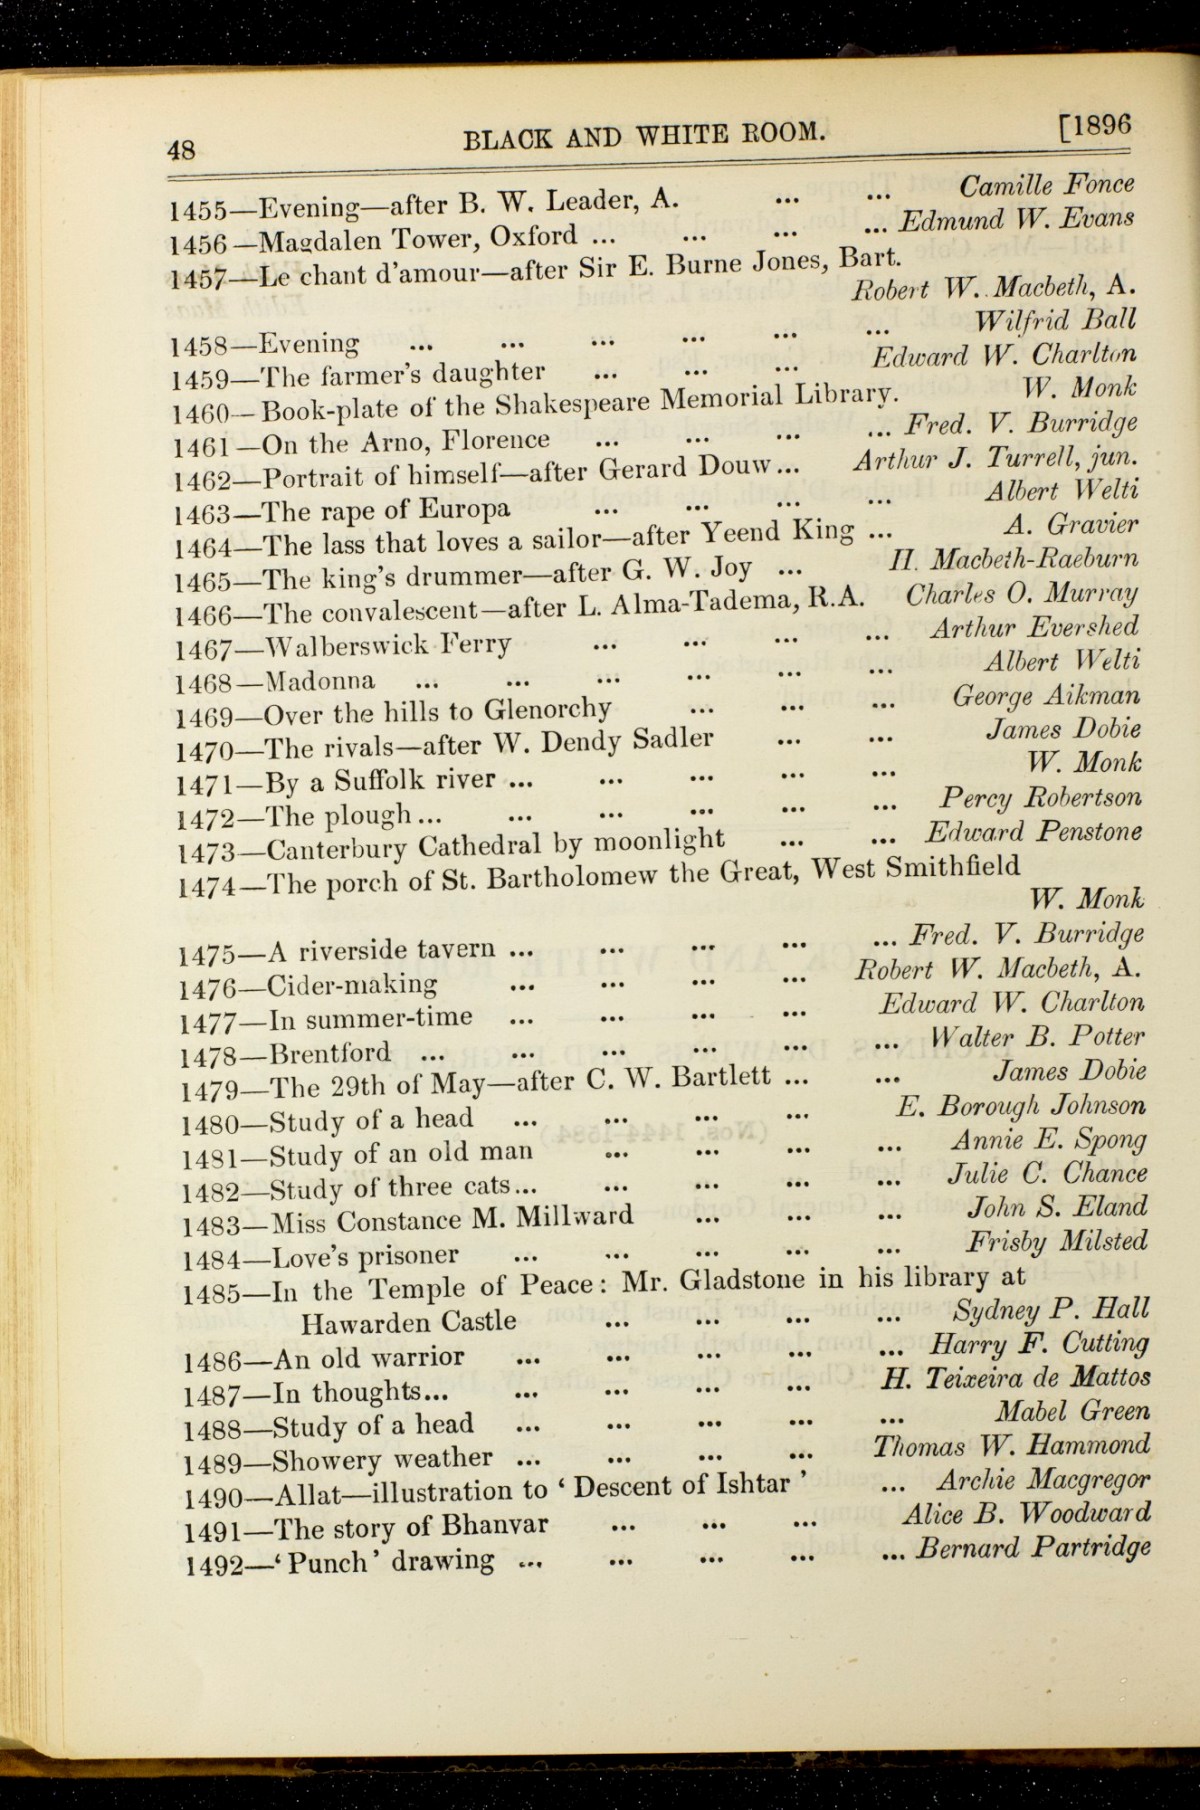 48 BLACK AND WHITE ROOM. [1896
1455—Evening—after B. W. Leader, A. ... ... Camille Fonce
1456—Magdalen Tower, Oxford ... ... ... ... Edmund W. Evans
1457—Le chant d'amour—after Sir E. Burne Jones, Bart.
Robert W. Macbeth, A.
1458—Evening ... ... ... ... ... ... Wilfrid Ball
1459—The farmer's daughter ... ... ... Edward W. Charlton
1460—Book-plate of the Shakespeare Memorial Library. W. Monk
1461—On the Arno, Florence ... ... ... ... Fred. V. Burridge
1462—Portrait of himself—after Gerard Douw... Arthur J. Turrell, jun.
1463—The rape of Europa ... ... ... ... Albert Welti
1464—The lass that loves a sailor—after Yeend King ... A. Gravier
1465—The king's drummer—after G. W. Joy ... H. Macbeth-Raeburn
1466—The convalescent—after L. Alma-Tadema, R.A. Charles O. Murray
1467—Walberswick Ferry ... ... ... ... Arthur Evershed
1468—Madonna ... ... ... ... ... ... Albert Welti
1469—Over the hills to Glenorchy ... ... ... George Aikman
1470—The rivals—after W. Dendy Sadler ... ... James Dobie
1471—By a Suffolk river ... ... ... ... ... W. Monk
1472—The plough... ... ... ... ... ... Percy Robertson
1473—Canterbury Cathedral by moonlight ... ... Edward Penstone
1474—The porch of St. Bartholomew the Great, West Smithfield
W. Monk
1475—A riverside tavern ... ... ... ... ... Fred. V. Burridge
1476—Cider-making ... ... ... ... Robert W. Macbeth, A.
1477—In summer-time ... ... ... ... Edward W. Charlton
1478—Brentford ... ... ... ... ... ... Walter B. Potter
1479—The 29th of May—after C. W. Bartlett ... ... James Dobie
1480—Study of a head ... ... ... ... E. Borough Johnson
1481—Study of an old man ... ... ... ... Annie E. Spong
1482—Study of three cats... ... ... ... ... Julie C. Chance
1483—Miss Constance M. Millward ... ... ... John S. Eland
1484—Love's prisoner ... ... ... ... ... Frisby Milsted
1485—In the Temple of Peace: Mr. Gladstone in his library at
Hawarden Castle ... ... ... ... Sydney P. Hall
1486—An old warrior ... ... ... ... ... Harry F. Cutting
1487—In thoughts... ... ... ... ... H. Teixeira de Mattos
1488—Study of a head ... ... ... ... ... Mabel Green
1489—Showery weather ... ... ... ... Thomas W. Hammond
1490—Allat—illustration to ‘ Descent of Ishtar ’ ... Archie Macgregor
1491—The story of Bhanvar ... ... ... Alice B. Woodward
1492—‘ Punch ’ drawing ... ... ... ... ... Bernard Partridge